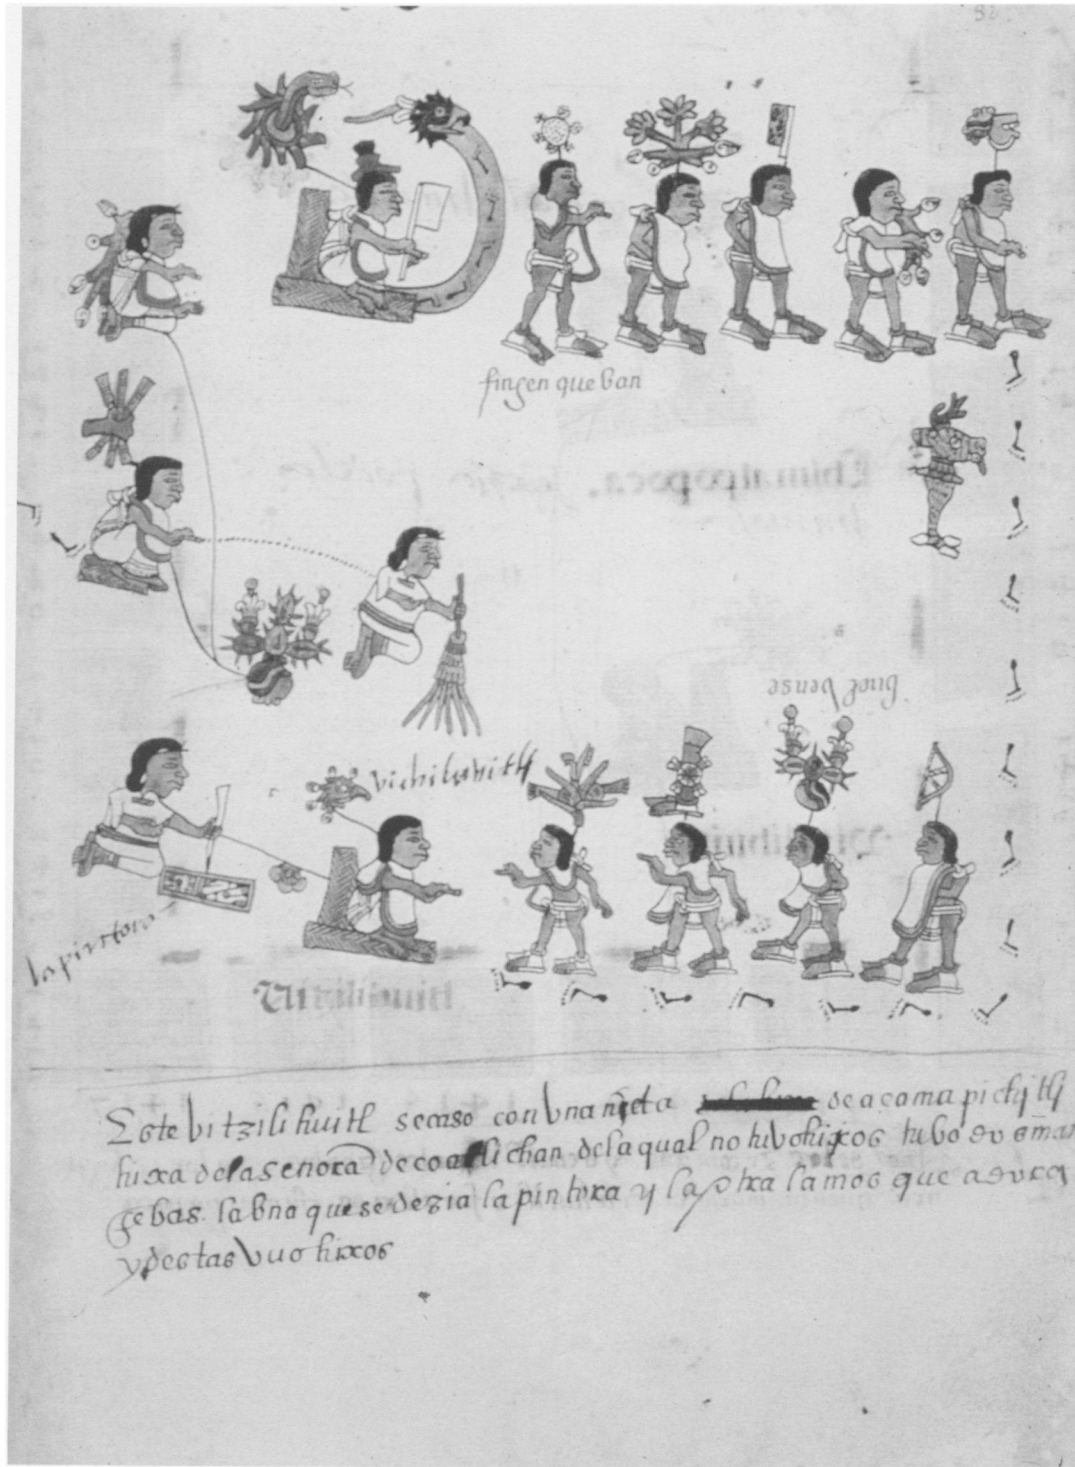 fingen que ban
buelbense
vichilivitli
la pintora
Vitzilihuitl
Este vitzilihuitl se caso con vna nieta de acamapichtli
hixa de la senora de coatlichan de la qual no huvo hixos tubo dos man
çebas la vna que se dezia la pintora y la otra la mos que adorar
y destas vuo hixos